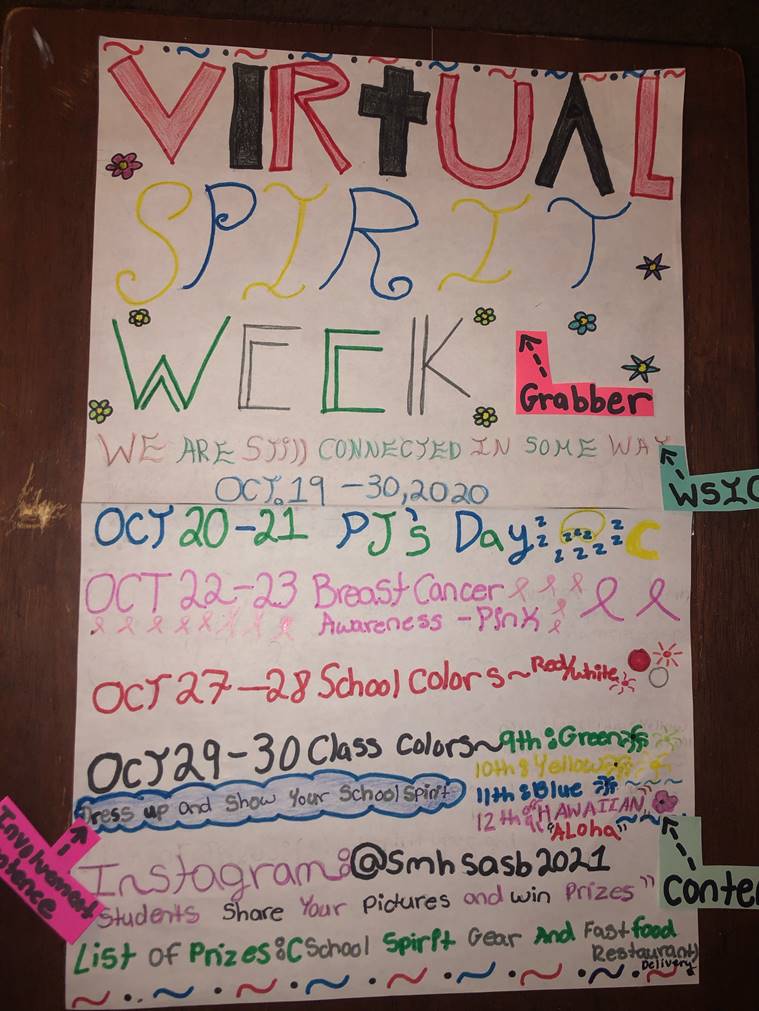 VIRTUAL
SPIRIT
WEEK
Grabber
WE ARE STill CONNECTED IN SOME WAY
WSIC
OCT. 19 - 30, 2020
OCT 20-21 PJ's Day z z z z z z z z
OCT 22-23 Breast Cancer
Awareness - Pink
OCT 27-28 School Colors ~ Red/white
OCT 29-30 Class Colors ~ 9th: Green
10th: Yellow
11th: Blue
12th: HAWAIIAN
"ALoha"
Dress up and Show Your School Spirit
Involvement
Instagram: @smhsasb2021
Students Share Your Pictures and win Prizes"
List of Prizes: (School Spirit Gear And Fastfood
Restaurant)
Delivery